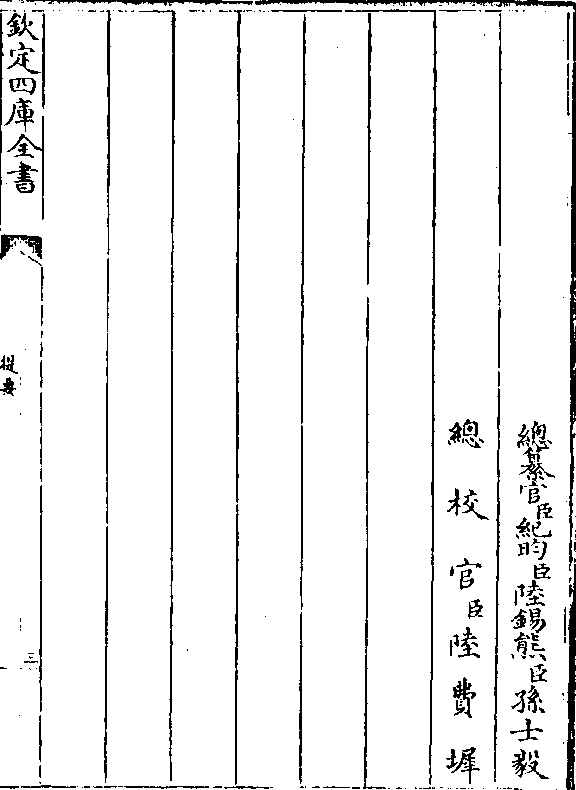 總纂官臣紀昀臣陸錫熊臣孫士毅
總校官臣陸費墀
欽定四庫全書
提要
三